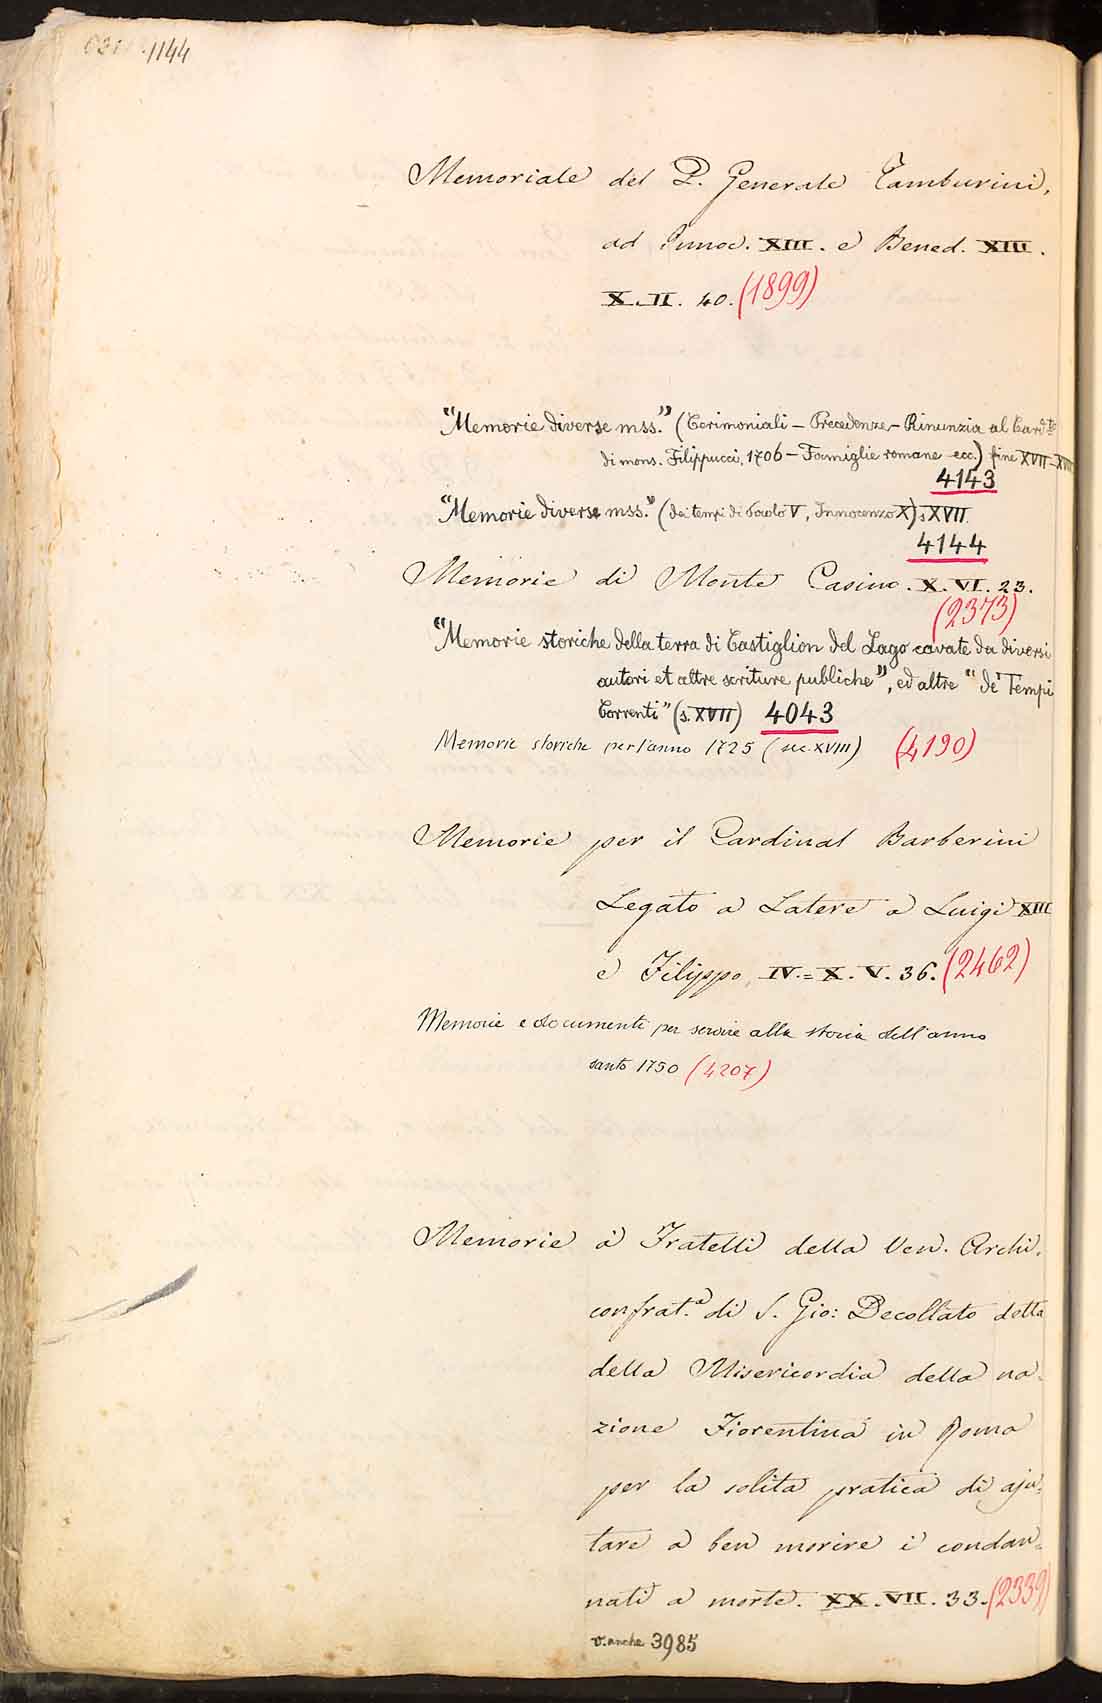 1144
Memoriale del P. Generale Tamburini,
ad Innoc. XIII. e Bened. XIII.
X. II. 40. (1899)
"Memorie diverse mss." (Cerimoniali – Precedenze – Rinunzia al Card.to
di mons. Filippucci, 1706 – Famiglie romane ecc.) fine XVII-XVIII
4143
"Memorie diverse mss." (dai tempi di Paolo V, Innocenzo X) s XVII.
4144
Memorie di Monte Casino. X. VI. 23.
(2373)
"Memorie storiche della terra di Castiglion del Lago cavate da diversi
autori et altre scriture publiche", ed altre "de' Tempi
Correnti" (s. XVII) 4043
Memorie storiche per l'anno 1725 (sec. XVIII) (4190)
Memorie per il Cardinal Barberini
Legato a Latere a Luigi XIII
e Filippo IV. = X. V. 36. (2462)
Memorie e documenti per servire alla storia dell'anno
santo 1750 (4207)
Memorie a' Fratelli della Ven. Archi.
confrat.a di S. Gio: Decollato detta
della Misericordia della na.
zione Fiorentina in Roma
per la solita pratica di aju.
tare a ben morire i condan.
nati a morte. XX. VII. 33. (2339)
v. anche 3985